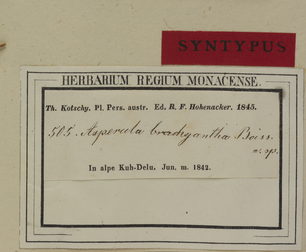 SYNTYPUS
HERBARIUM REGIUM MONACENSE.
Th. Kotschy. Pl. Pers. austr. Ed. R. F. Hohenacker. 1845.
505. Asperula brachyantha Boiss.
n. sp.
In alpe Kuh-Delu. Jun. m. 1842.